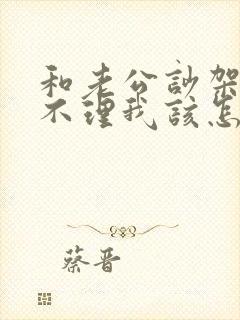 和老公訟架
不理我該怎
蔡晋